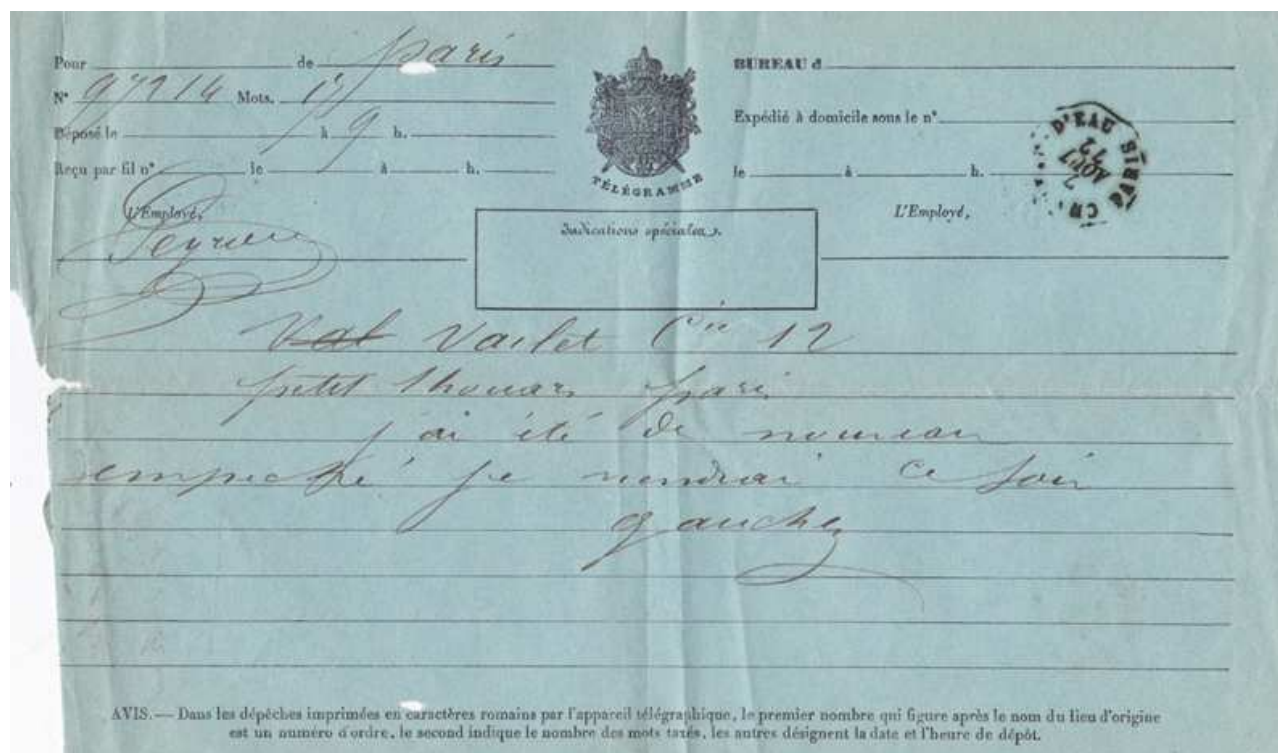 Pour de Paris
N° 97214 Mots. 17
Déposé le à 9 h.
Reçu par fil n° le à h.
L'Employé,
TÉLÉGRAMME
Indications spéciales.
BUREAU d
Expédié à domicile sous le n°
le à h.
L'Employé,
D'EAU PARIS CH.
2
AOUT
Val Vailet Cie 12
petit Thouars paris
j ai été de nouveau
empeché je viendrai ce soir
gauchez
AVIS.— Dans les dépêches imprimées en caractères romains par l'appareil télégraphique, le premier nombre qui figure après le nom du lieu d'origine
est un numéro d'ordre, le second indique le nombre des mots taxés, les autres désignent la date et l'heure de dépôt.